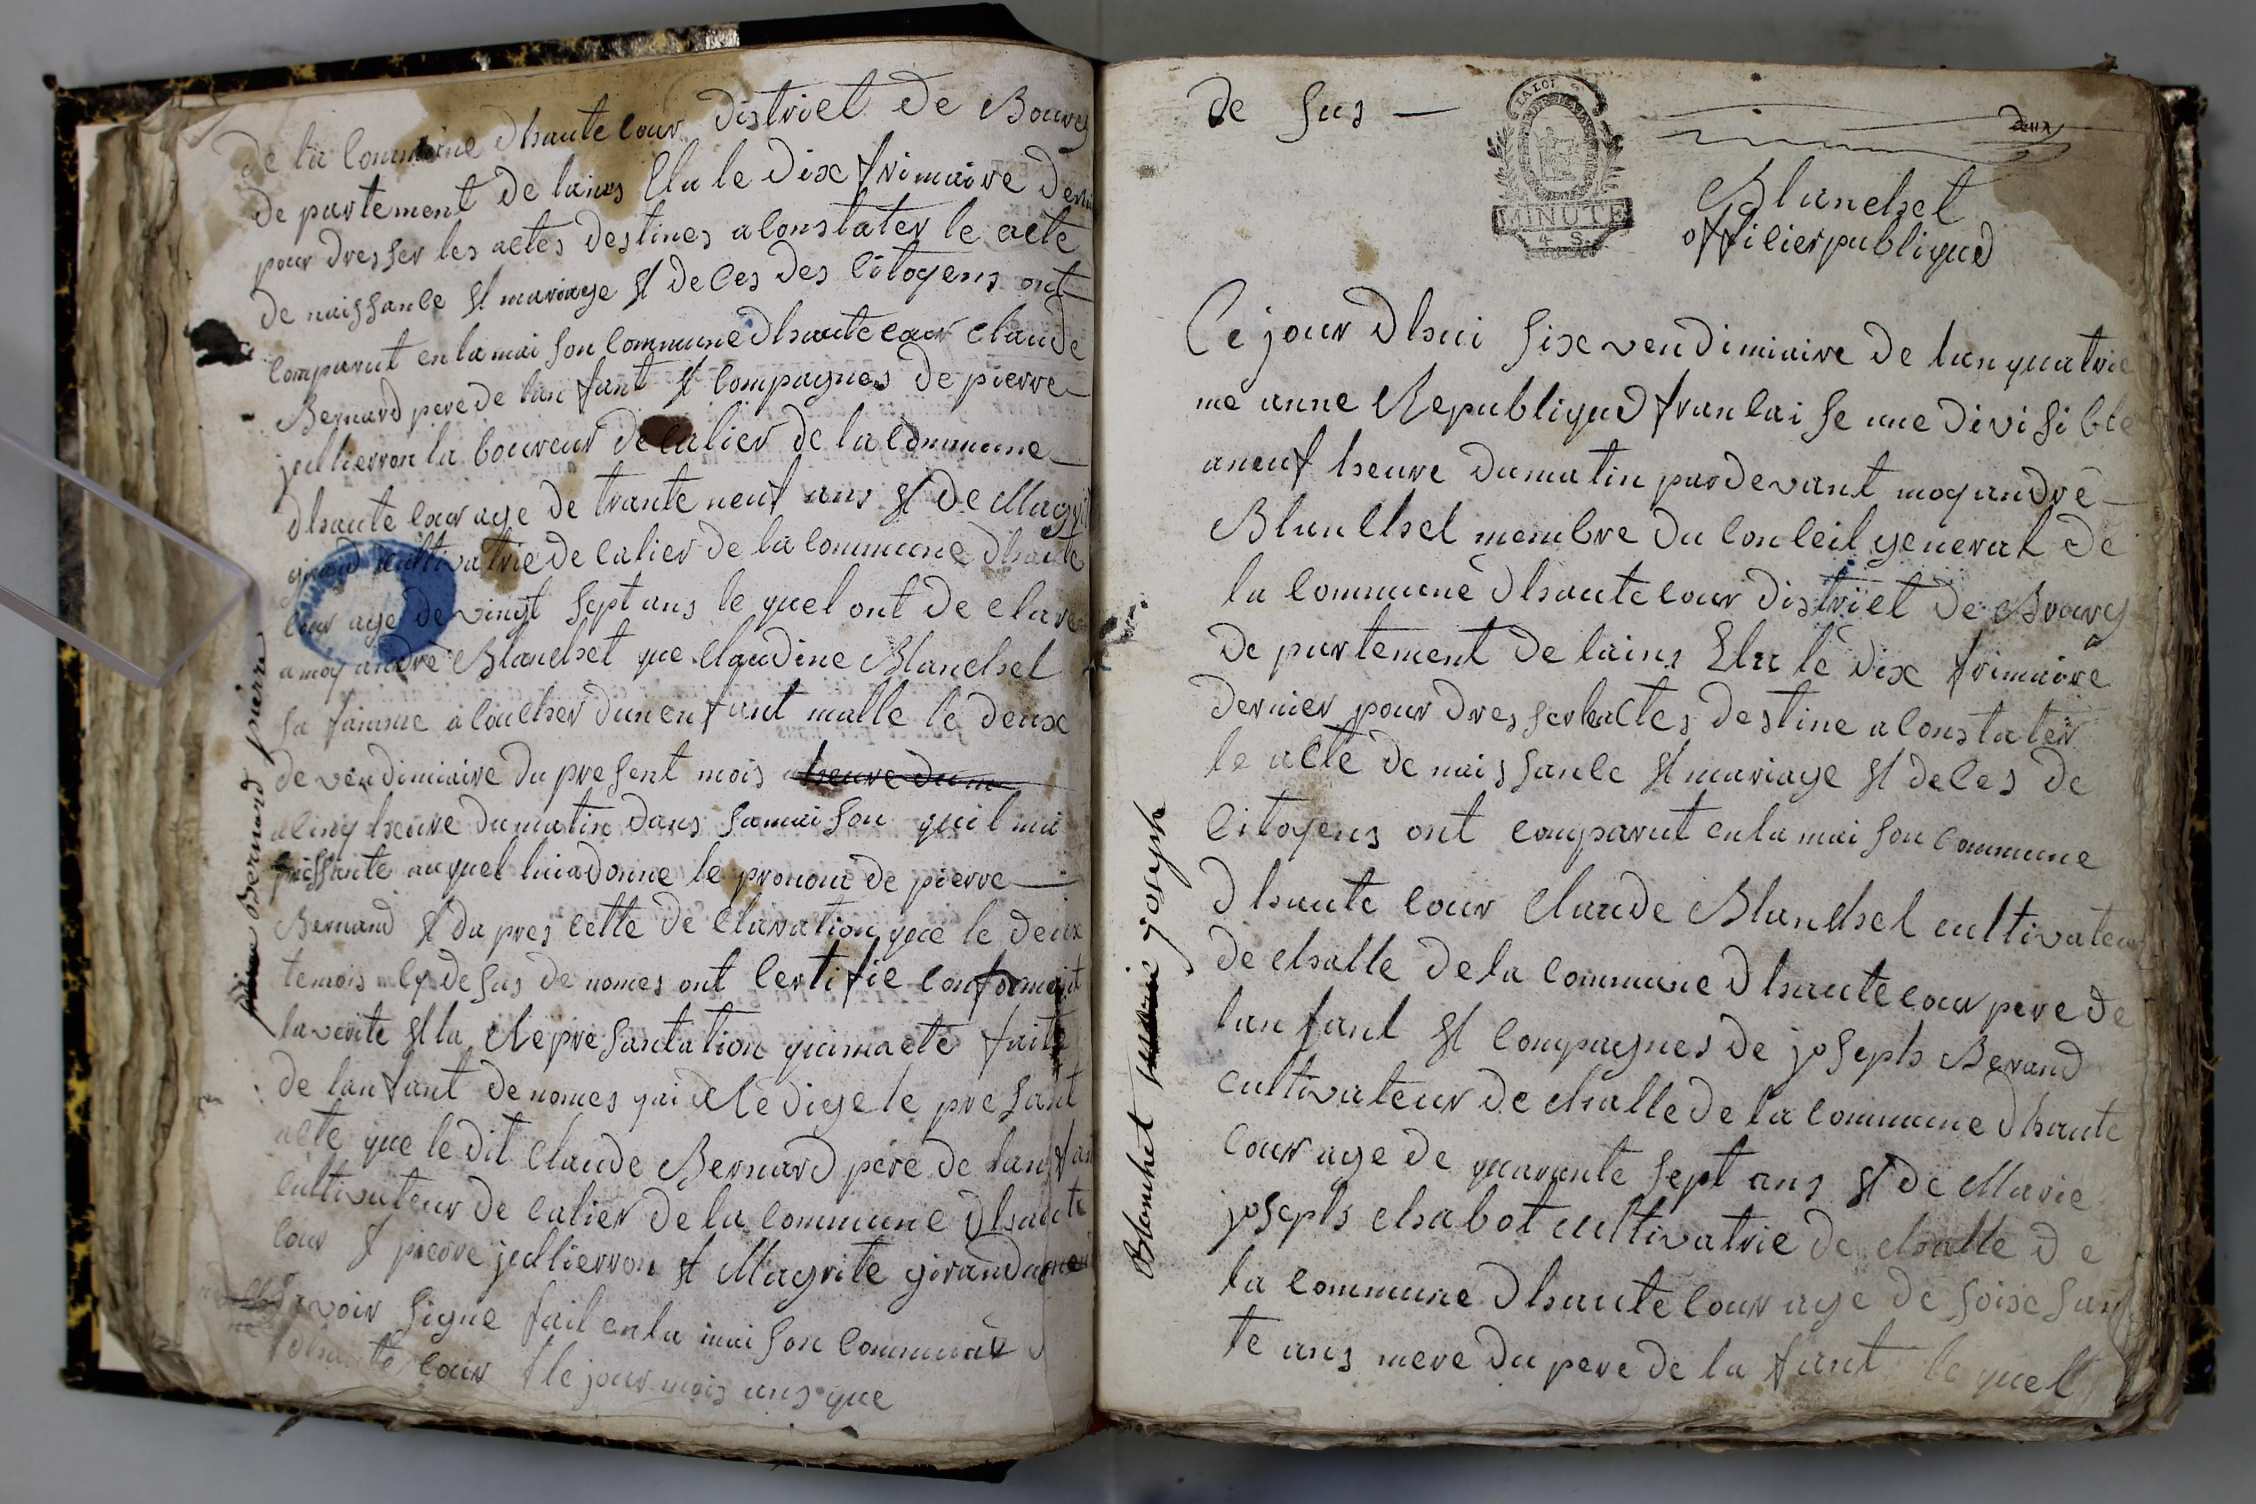 de la Commune dhautecour district de Bourg
de partement de lains Elu le dix frimaire dern
pour dresser les actes destines a Constater le acte
de naissance et mariage et deces des Citoyens ont
Comparut en la maison Commune dhautecour Claude
Bernard pere de lanfant et Compagnes de pierre
jullierron laboureur de Calier de la Commune
dhaute Cour age de trante neuf ans et de Magrit
girand Cultivatrie de Calier de la Commune dhaute
Cour age de vingt sept ans le quel ont de clare
a moy andre Blanchet que Claudine Blanchet
sa famme a Coucher dun enfant malle le deux
de vendimiaire du present mois heure du m
a Cinq heure du matin dans sa maison quil ma
pressante auquel luia donne le pronom de pierre
Bernard et da pres Cette de Claration que le deux
temois Cy de sus de nomes ont Certifie Conformait
la verite et la Représantation qui ma ete faite
de lanfant de nomes jai Redige le present
acte que le dit Claude Bernard père de lanfan
Cultivateur de Calier de la Commune dhaute
Cour et pierre jullierron et Magrite girand
savoir signe fait en la maison Commune
dhaute Cour le jour mois ans que
Bernard pierre
de sus
LA LOI
MINUTE
4 S.
deux
Blanchet
officier publique
Ce jour dhui six vendimiaire de lan quatrie
me anne Republique francaise une divisible
a neuf heure du matin par devant moy andré
Blanchet membre du Conceil general de
la Commune dhaute Cour district de Bourg
de partement de lains Elu le dix frimaire
dernier pour dresser les actes destine a Constater
le acte de naissance et mariage et deces de
Citoyens ont comparut en la maison Commune
dhaute Cour Claude Blanchet cultivateur
de challe de la Commune dhaute Cour pere de
lanfant et Compagnes de joseph Berand
cultivateur de challe de la Commune dhaute
Cour age de quarante sept ans et de Marie
joseph chabot cultivatrie de challe de
la Commune dhaute Cour age de soixsan
te ans mere du pere de la fant le quel
Blanchet joseph